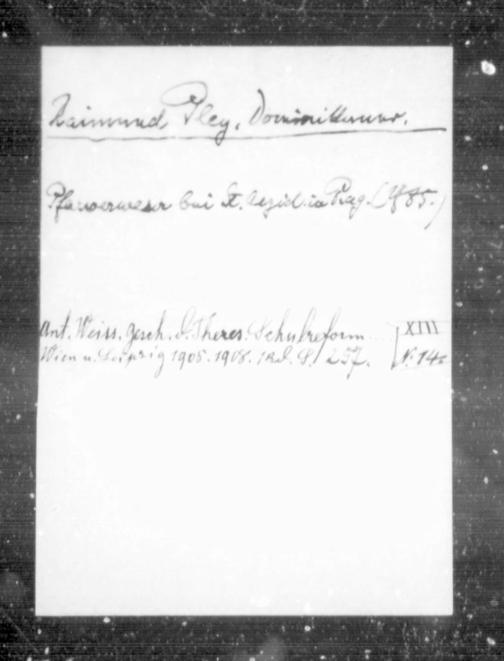 Raimund Pley, Dominikaner.
Pfarverweser bei St. Aegid. in Prag. (1785.)
Ant. Weiss. Gesch. d. Theres. Schulreform
Wien u. Leipzig 1905. 1908. 1 Bd. S. 257.
XIII
N. 14